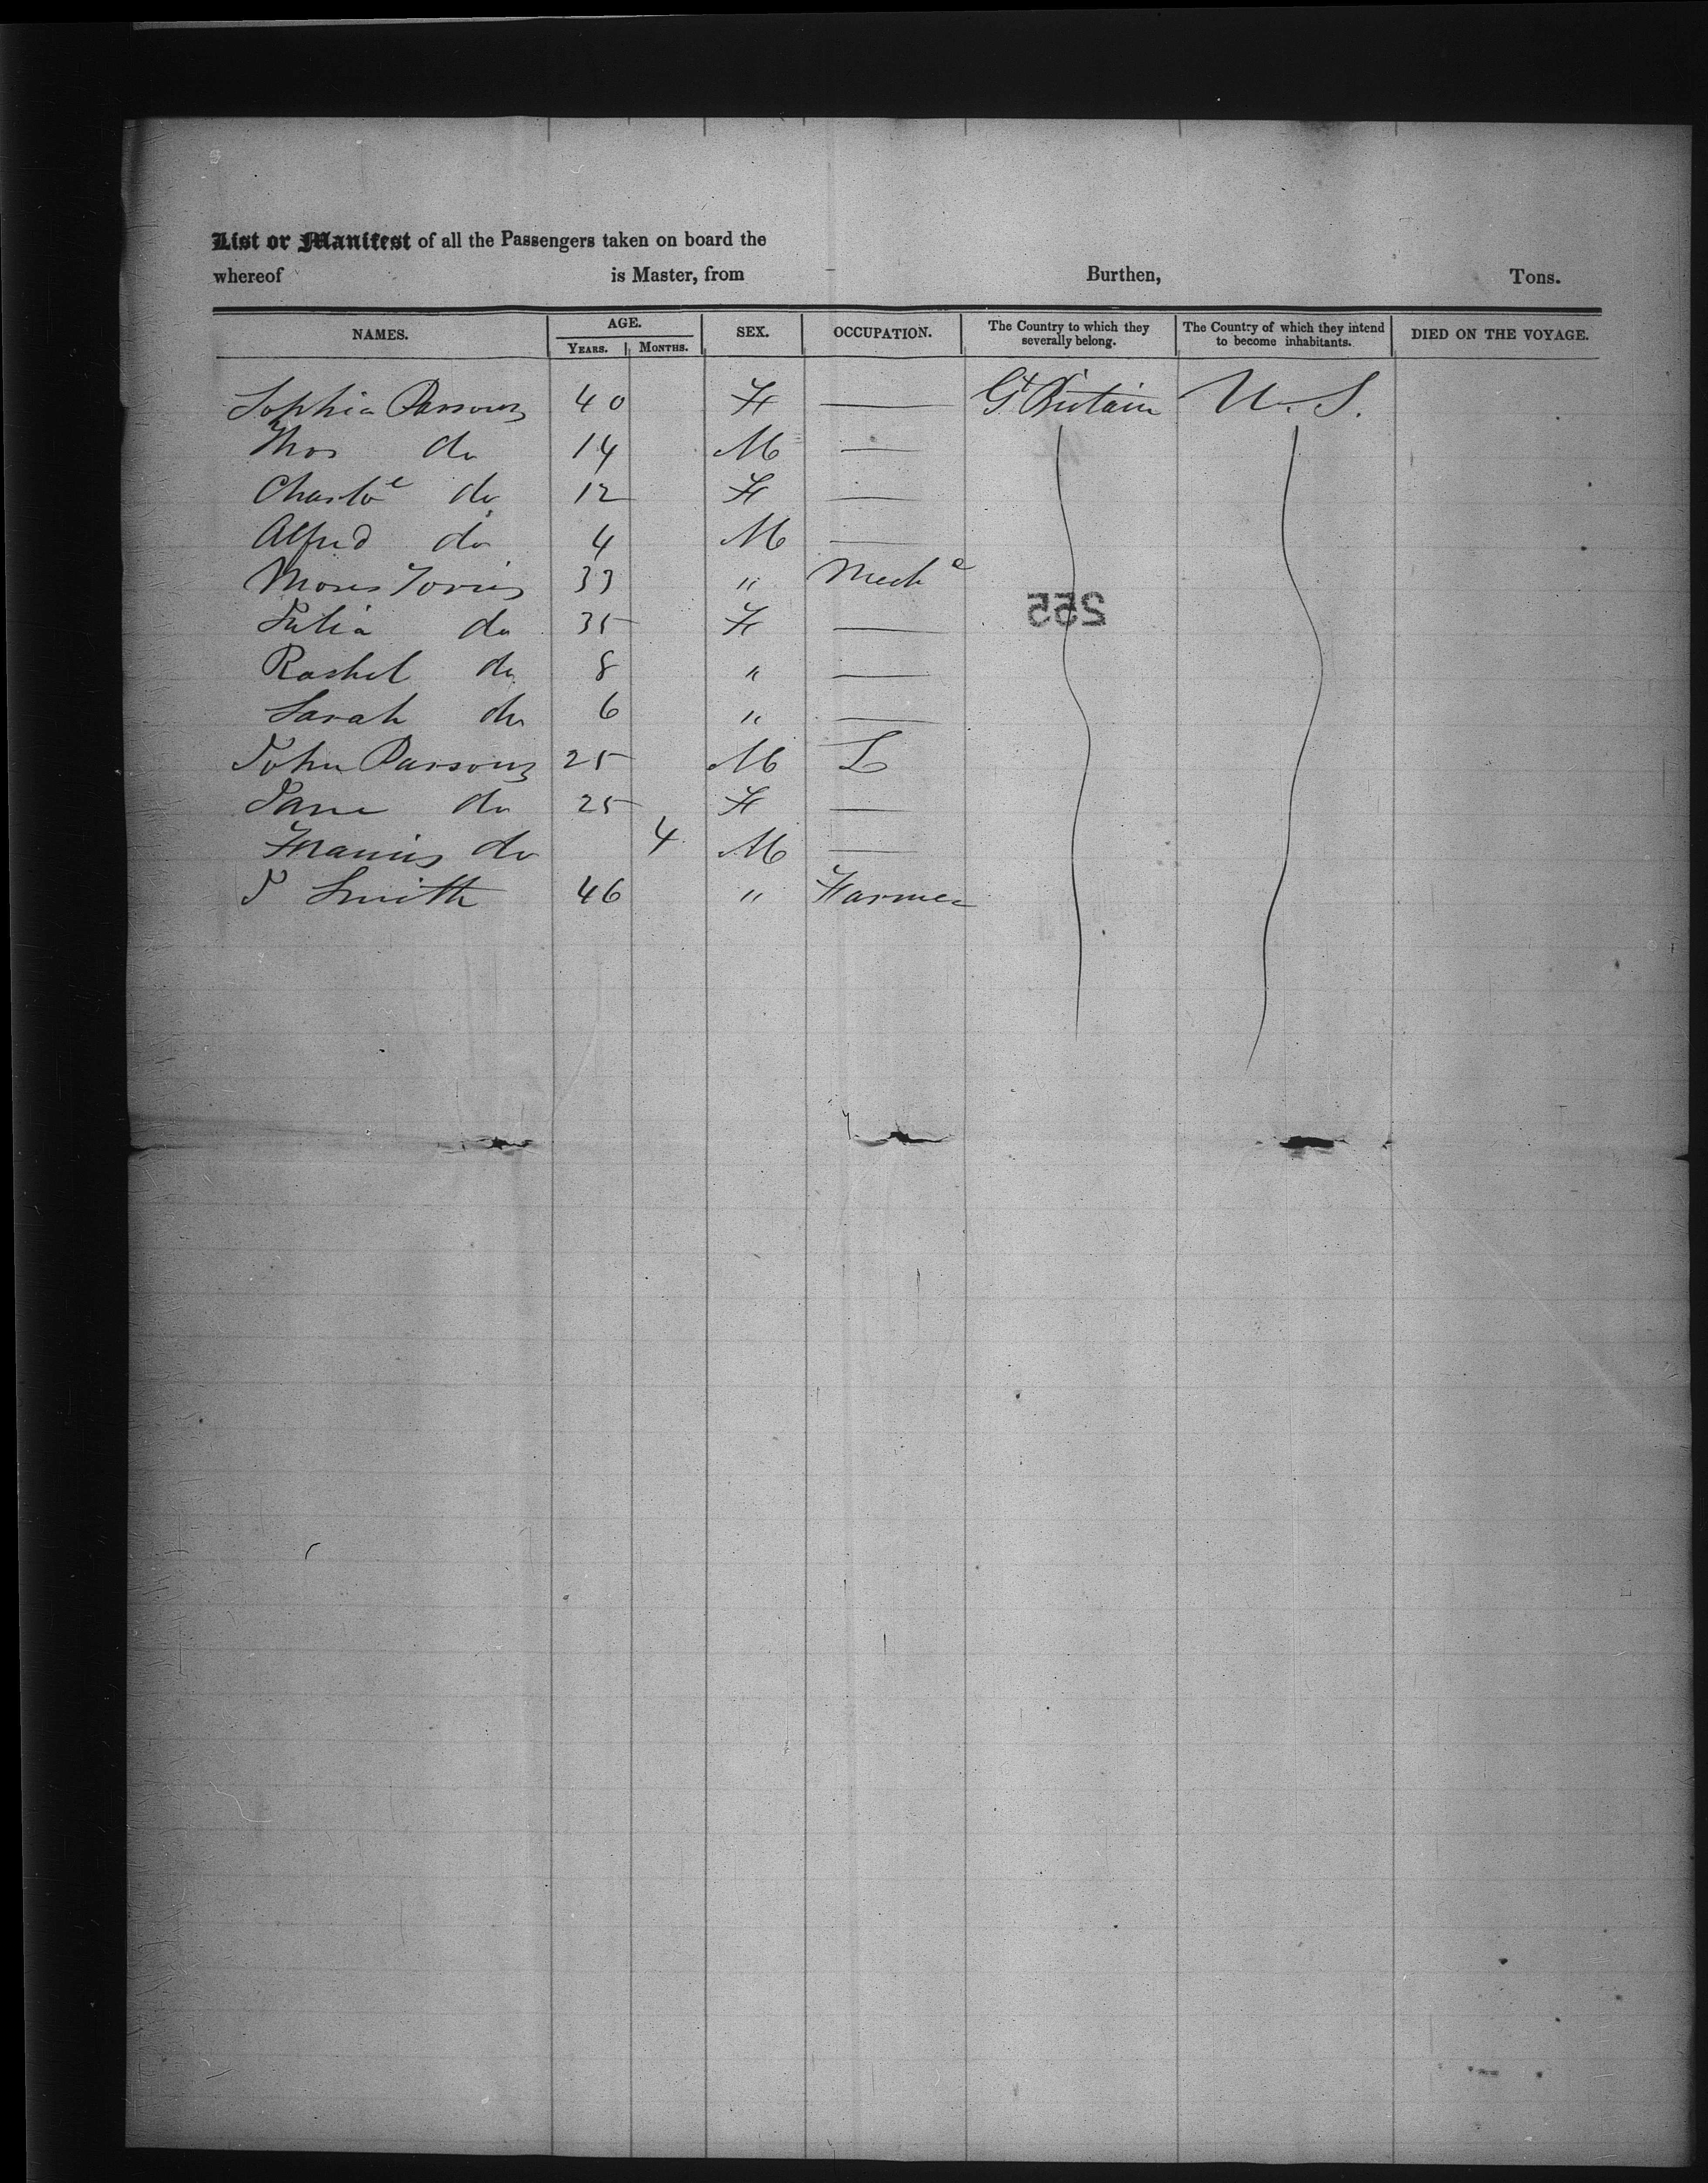 List or Manifest of all the Passengers taken on board the
whereof is Master, from Burthen, Tons.
NAMES. AGE. SEX. OCCUPATION. The Country to which they severally belong. The Country of which they intend to become inhabitants. DIED ON THE VOYAGE.
YEARS. MONTHS.
Sophia Parsons 40 F — Gt Britain U. S.
Thos do 14 M —
Charlote do 12 F —
Alfred do 4 M —
Moses 33 " Mech c
Julia do 35 F —
Rachel do 8 " —
Sarah do 6 " —
John Parsons 25 M L
Jane do 25 F —
Francis do 4 M —
J Smith 46 " Farmer